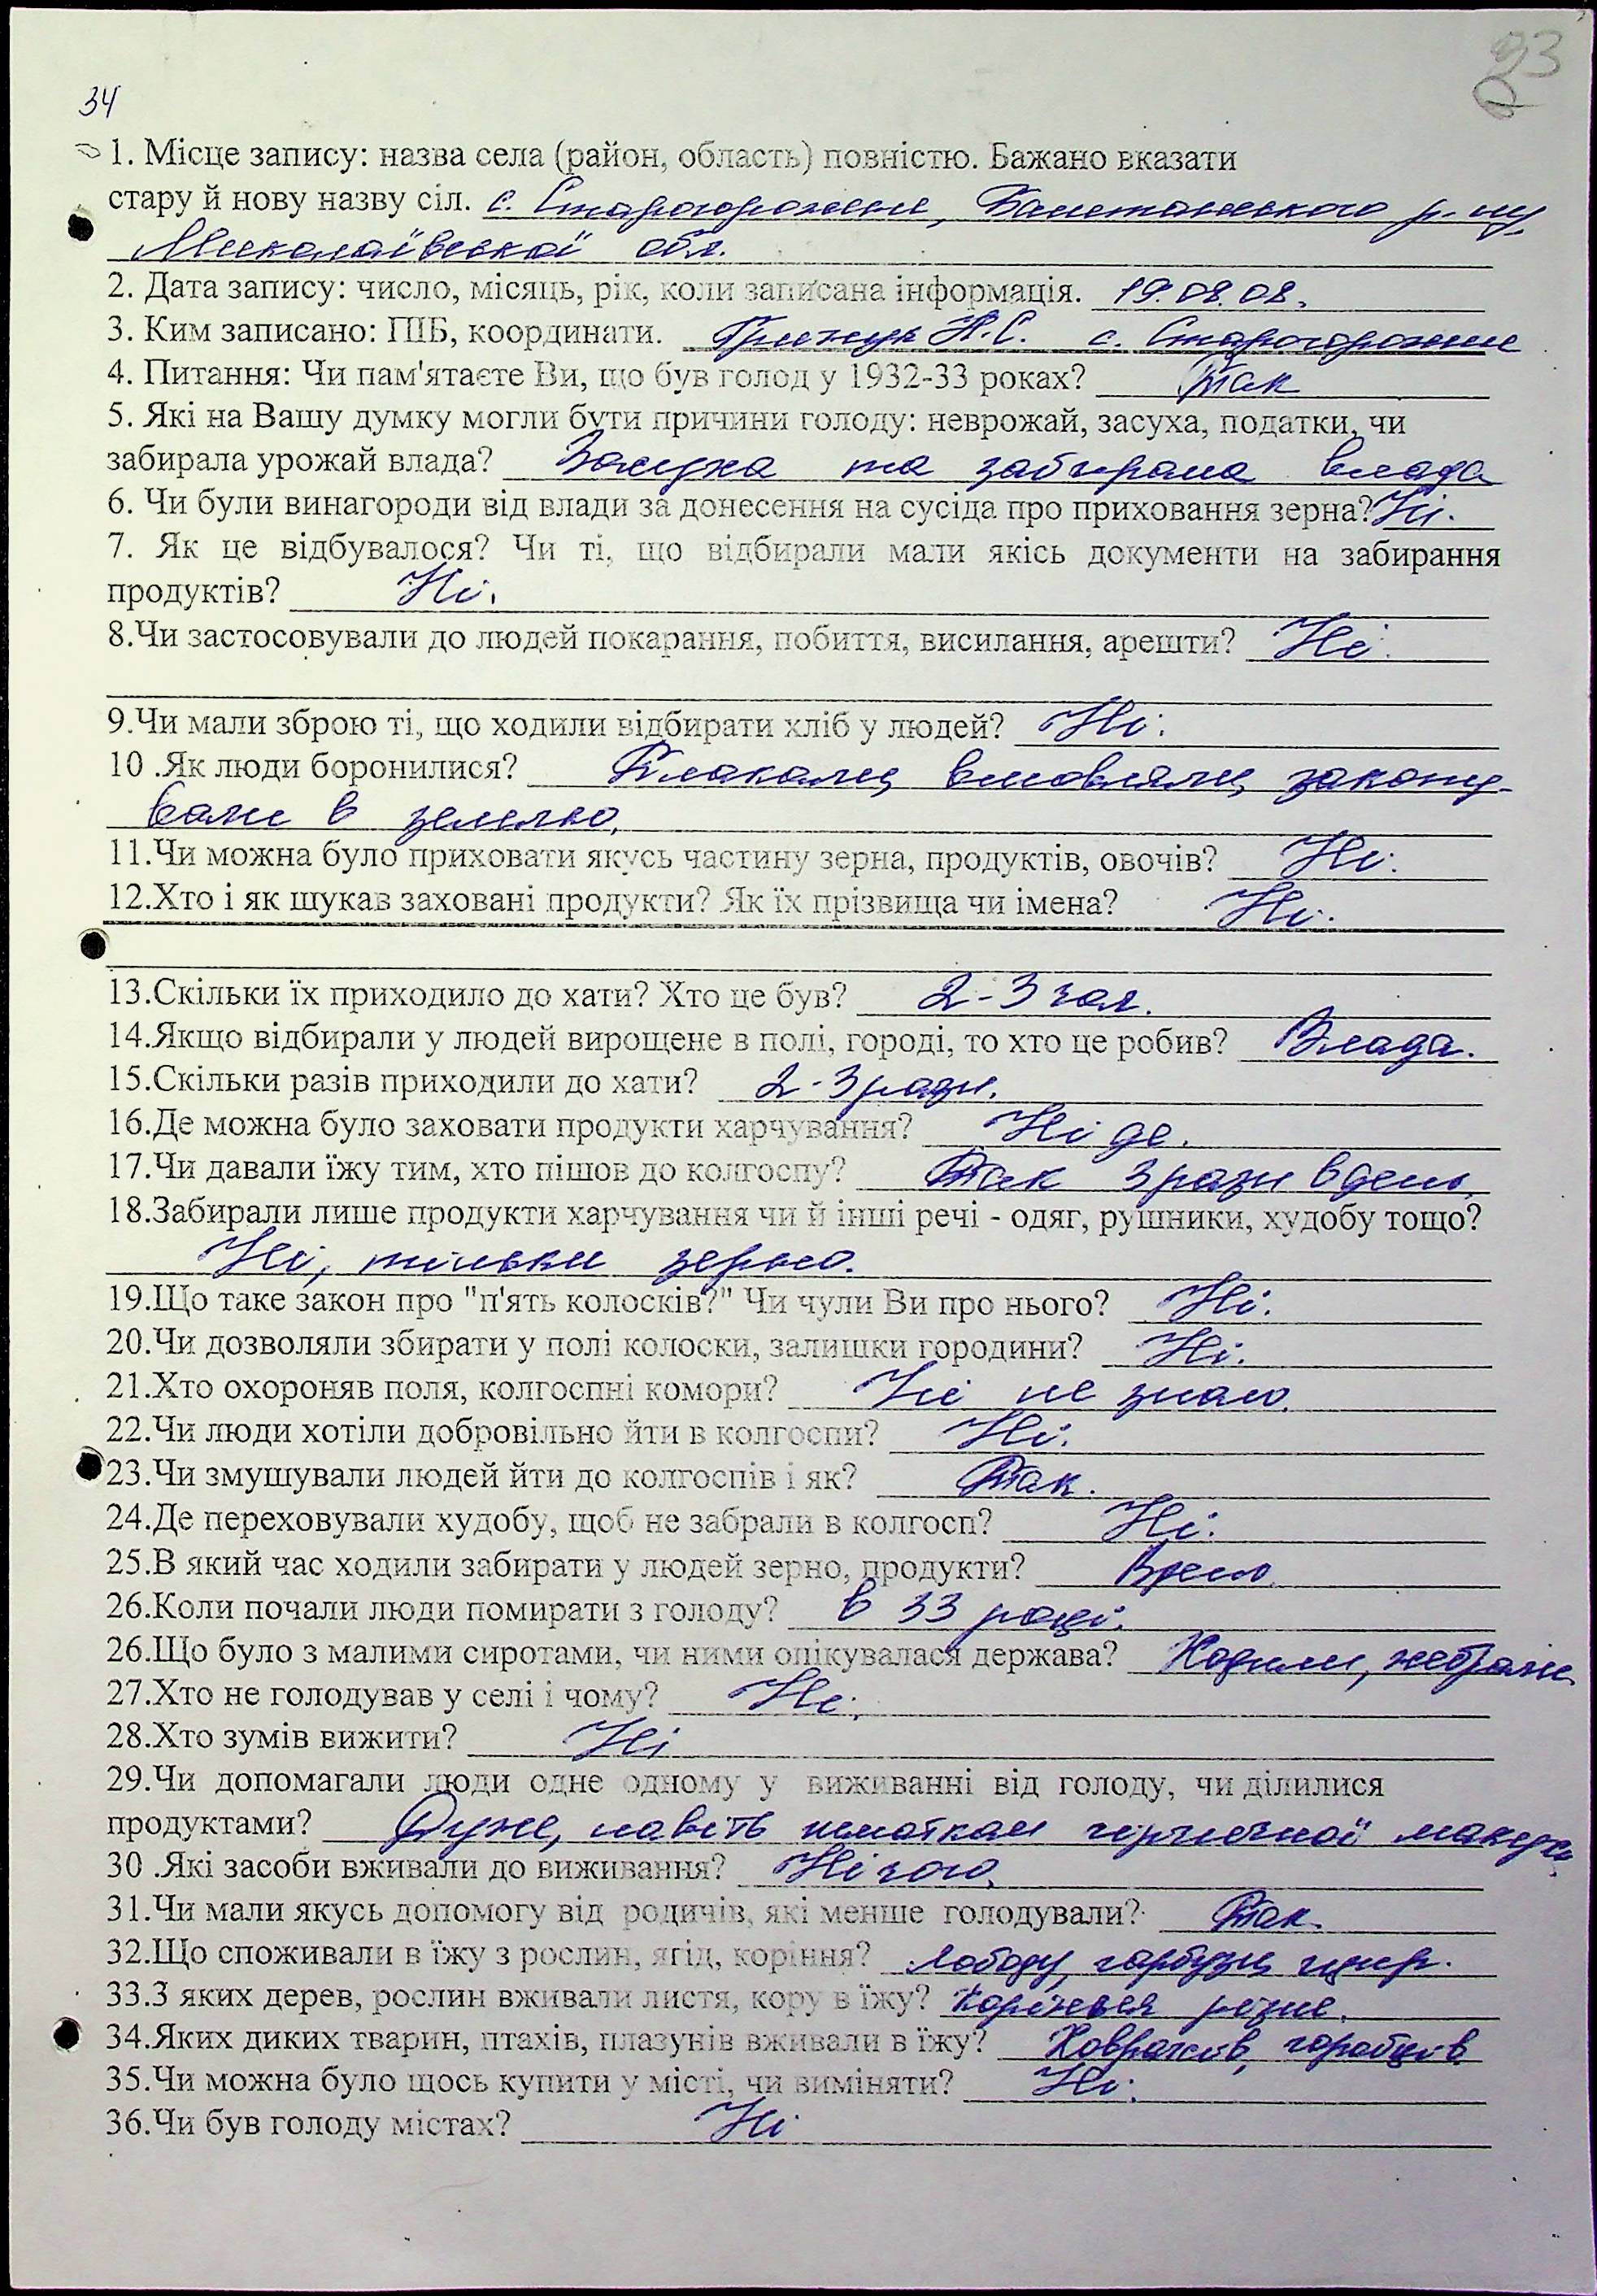 93
34
1. Місце запису: назва села (район, область) повністю. Бажано вказати
стару й нову назву сіл. с. Старогорожене, Баштанського р-ну,
Миколаївської обл.
2. Дата запису: число, місяць, рік, коли записана інформація. 19.08.08.
3. Ким записано: ПІБ, координати. Н.С. с. Старогорожене
4. Питання: Чи пам'ятаєте Ви, що був голод у 1932-33 роках? Так
5. Які на Вашу думку могли бути причини голоду: неврожай, засуха, податки, чи
забирала урожай влада? Засуха та забирала влада
6. Чи були винагороди від влади за донесення на сусіда про приховання зерна? Ні.
7. Як це відбувалося? Чи ті, що відбирали мали якісь документи на забирання
продуктів? Ні.
8.Чи застосовували до людей покарання, побиття, висилання, арешти? Ні.
9.Чи мали зброю ті, що ходили відбирати хліб у людей? Ні.
10 .Як люди боронилися? Плакали, вмовляли, закопу-
вали в землю.
11.Чи можна було приховати якусь частину зерна, продуктів, овочів? Ні.
12.Хто і як шукав заховані продукти? Як їх прізвища чи імена? Ні.
13.Скільки їх приходило до хати? Хто це був? 2-3 чол.
14.Якщо відбирали у людей вирощене в полі, городі, то хто це робив? Влада.
15.Скільки разів приходили до хати? 2-3 рази.
16.Де можна було заховати продукти харчування? Ні де.
17.Чи давали їжу тим, хто пішов до колгоспу? Так 3 рази в день.
18.Забирали лише продукти харчування чи й інші речі - одяг, рушники, худобу тощо?
Ні, тільки зерно.
19.Що таке закон про "п'ять колосків?" Чи чули Ви про нього? Ні.
20.Чи дозволяли збирати у полі колоски, залишки городини? Ні.
21.Хто охороняв поля, колгоспні комори? Ні не знаю.
22.Чи люди хотіли добровільно йти в колгоспи? Ні.
23.Чи змушували людей йти до колгоспів і як? Так.
24.Де переховували худобу, щоб не забрали в колгосп? Ні.
25.В який час ходили забирати у людей зерно, продукти? Вдень.
26.Коли почали люди помирати з голоду? в 33 році.
26.Що було з малими сиротами, чи ними опікувалася держава? Ходили, жебрали
27.Хто не голодував у селі і чому? Ні.
28.Хто зумів вижити? Ні
29.Чи допомагали люди одне одному у виживанні від голоду, чи ділилися
продуктами? Дуже, навіть шматкам гірчичної макухи.
30 .Які засоби вживали до виживання? Нічого.
31.Чи мали якусь допомогу від родичів, які менше голодували? Так.
32.Що споживали в їжу з рослин, ягід, коріння? Лободу, гарбузи,
33.З яких дерев, рослин вживали листя, кору в їжу? Коріння різне.
34.Яких диких тварин, птахів, плазунів вживали в їжу? Ховрахів, горобців.
35.Чи можна було щось купити у місті, чи виміняти? Ні.
36.Чи був голоду містах? Ні